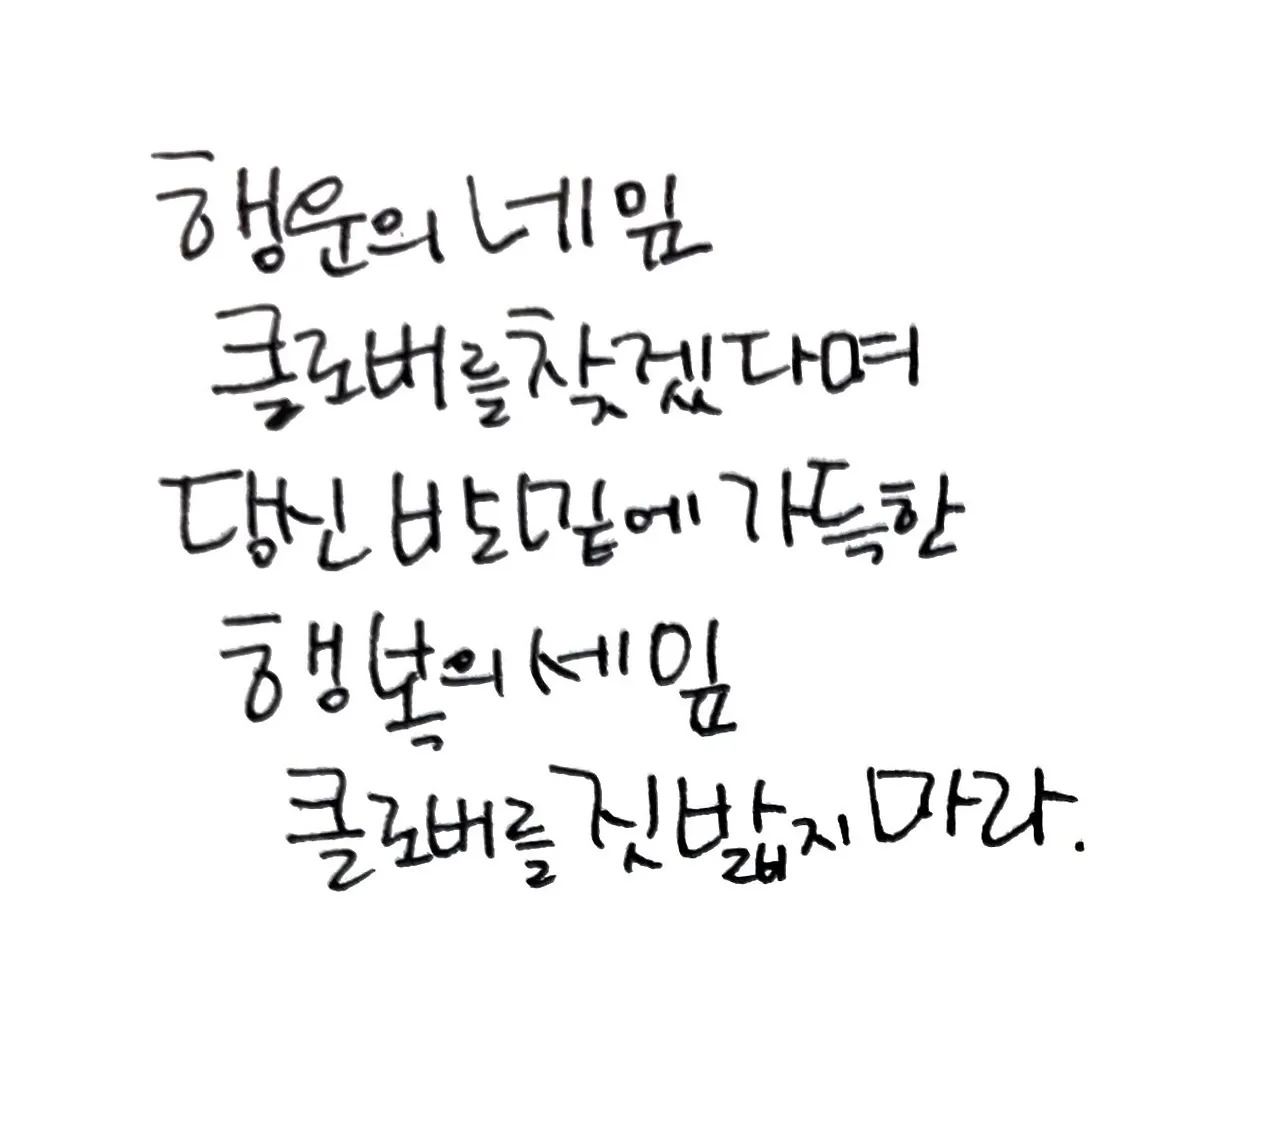 행운의 네잎
클로버를 찾겠다며
당신 발 밑에 가득한
행복의 세잎
클로버를 짓밟지 마라.